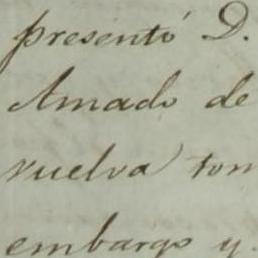 presentó D.
Amado de
vuelva tom
embargo y.